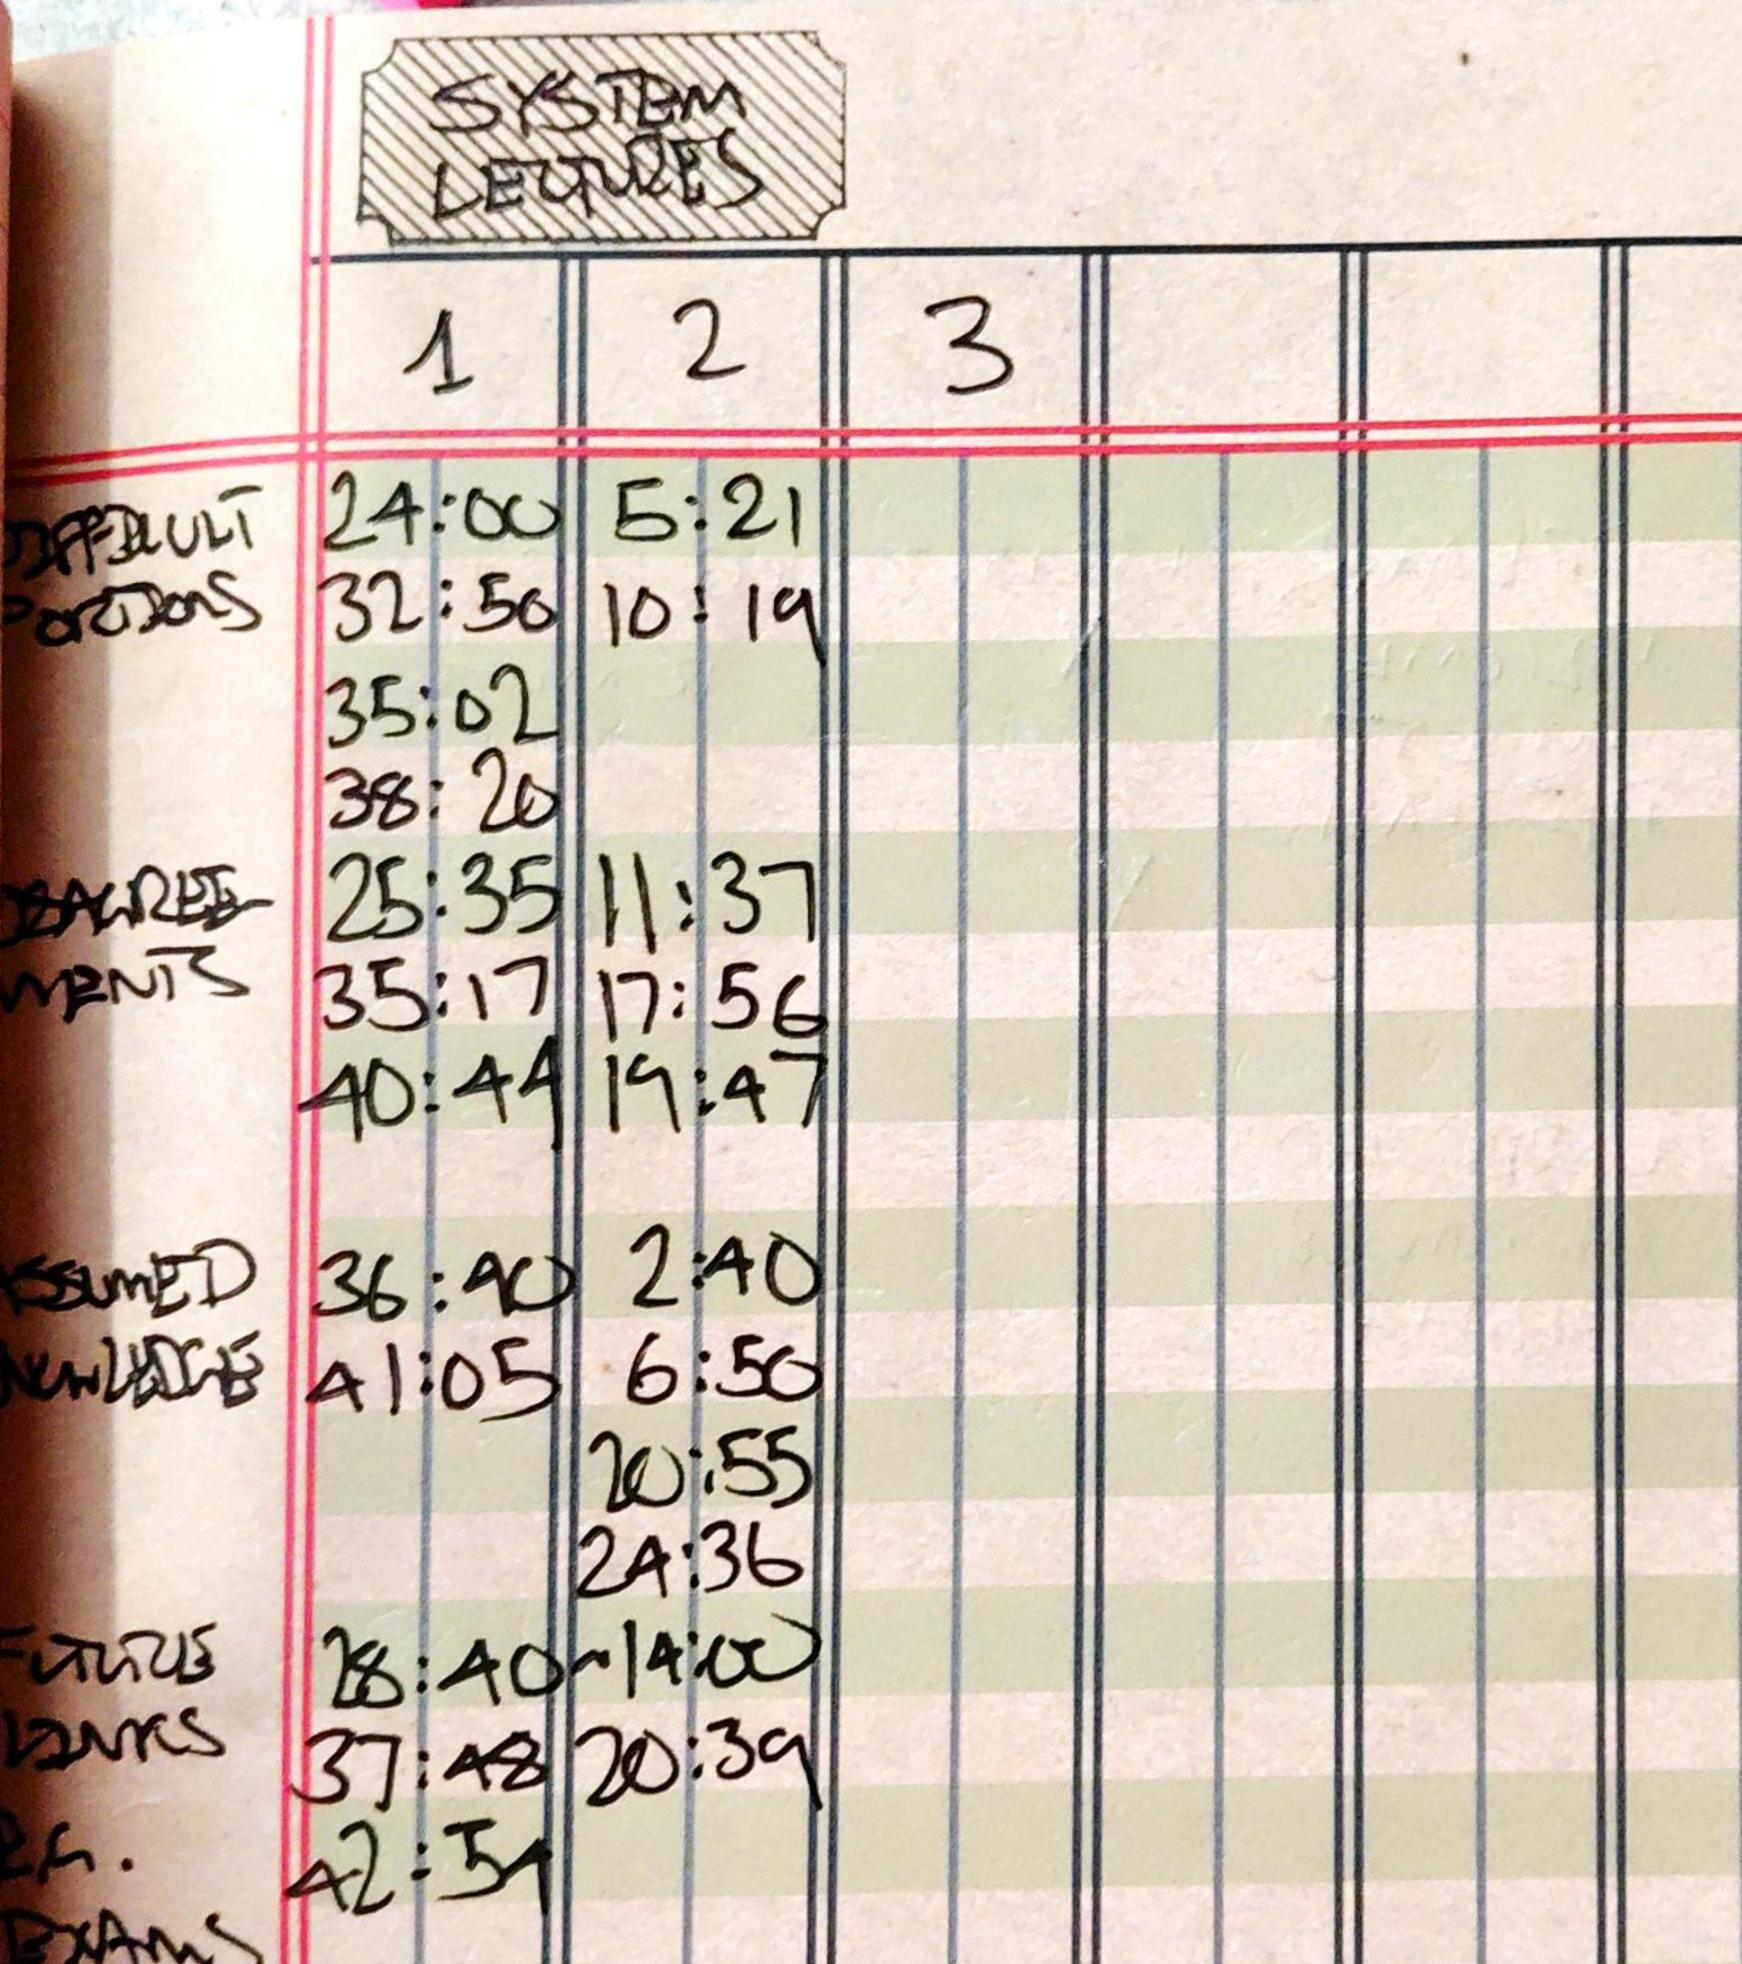 SYSTEM
LECTURES
1 2 3
DIFFICULT 24:00 5:21
PORTIONS 32:50 10:19
35:02
38:20
DISAGREE- 25:35 11:37
MENTS 35:17 17:56
40:44 19:47
ASSUMED 36:40 2:40
KNOWLEDGE 41:05 6:50
20:55
24:36
FUTURE 28:40 ~14:00
LINKS 37:48 20:39
E.G. 42:54
EXAMS